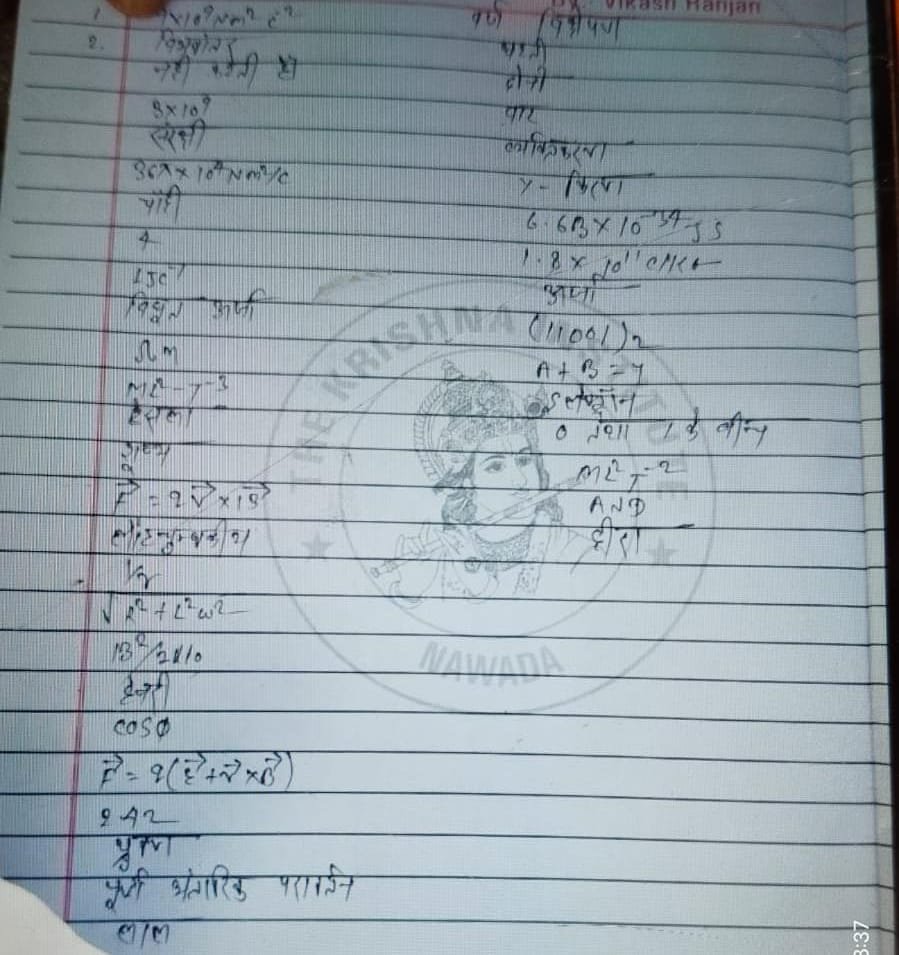 Vikash Ranjan
1. 9×10⁹ Nm² c⁻²
2.
नहीं करती है
3×10⁹
सदिश
36π×10⁴Nm²/C
चाँदी
4
1JC⁻¹
विद्युत ऊर्जा
Ωm
ML²T⁻³
टेसला
शून्य
F⃗ = qV⃗×B⃗
लौहचुम्बकीय
½
√R²+L²ω²
B²/2μ₀
हेनरी
cosΦ
F⃗ = q(E⃗+V⃗×B⃗)
2A2
पूर्ण आंतरिक परावर्तन
लाल
वर्ण विक्षेपण
पानी
दोनों
चार
X-किरण
6.63×10⁻³⁴ JS
1.8×10¹¹ C/Kg
ऊर्जा
(11001)₂
A+B=Y
इलेक्ट्रॉन
0 तथा 1 के बीच
ML²T⁻²
AND
हीरा
THE KRISHNA INSTITUTE
NAWADA
3:37